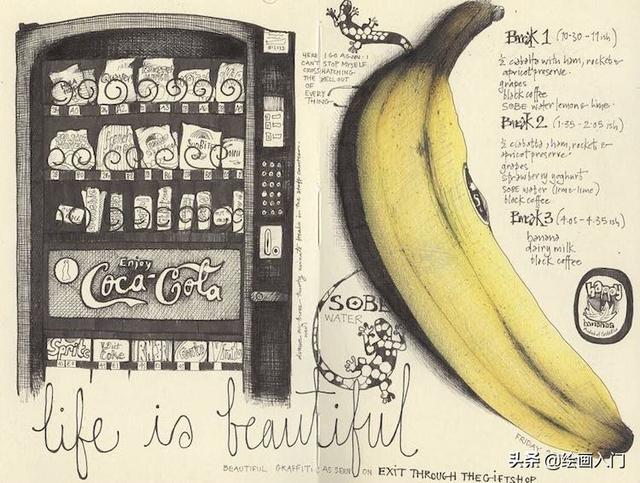 Enjoy
Coca-Cola
Sprite
Diet
Coke
HERE I GO AGAIN. I
CAN'T STOP MYSELF
CROSSHATCHING
THE HELL OUT
OF
EVERY
THING
SOBE
WATER
Break 1 (10.30 - 11ish)
½ ciabatta with ham, rocket &
apricot preserve.
grapes
black coffee
SOBE water lemon & lime.
Break 2 (1.35 - 2.05 ish)
½ ciabatta, ham, rocket &
apricot preserve.
grapes
strawberry yoghurt
SOBE water (lime-lime)
black coffee
Break 3 (4.05 - 4.35 ish)
banana
dairy milk
black coffee
Happy
bananas
life is beautiful
BEAUTIFUL GRAFFITI AS SEEN ON EXIT THROUGH THE GIFTSHOP
FRIDAY
头条 @绘画入门